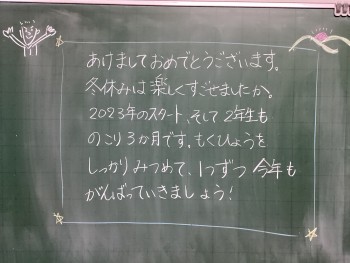 あけましておめでとうございます。
冬休みは楽しくすごせましたか。
2023年のスタート、そして2年生も
のこり3か月です。もくひょうを
しっかりみつめて、1つずつ今年も
がんばっていきましょう!